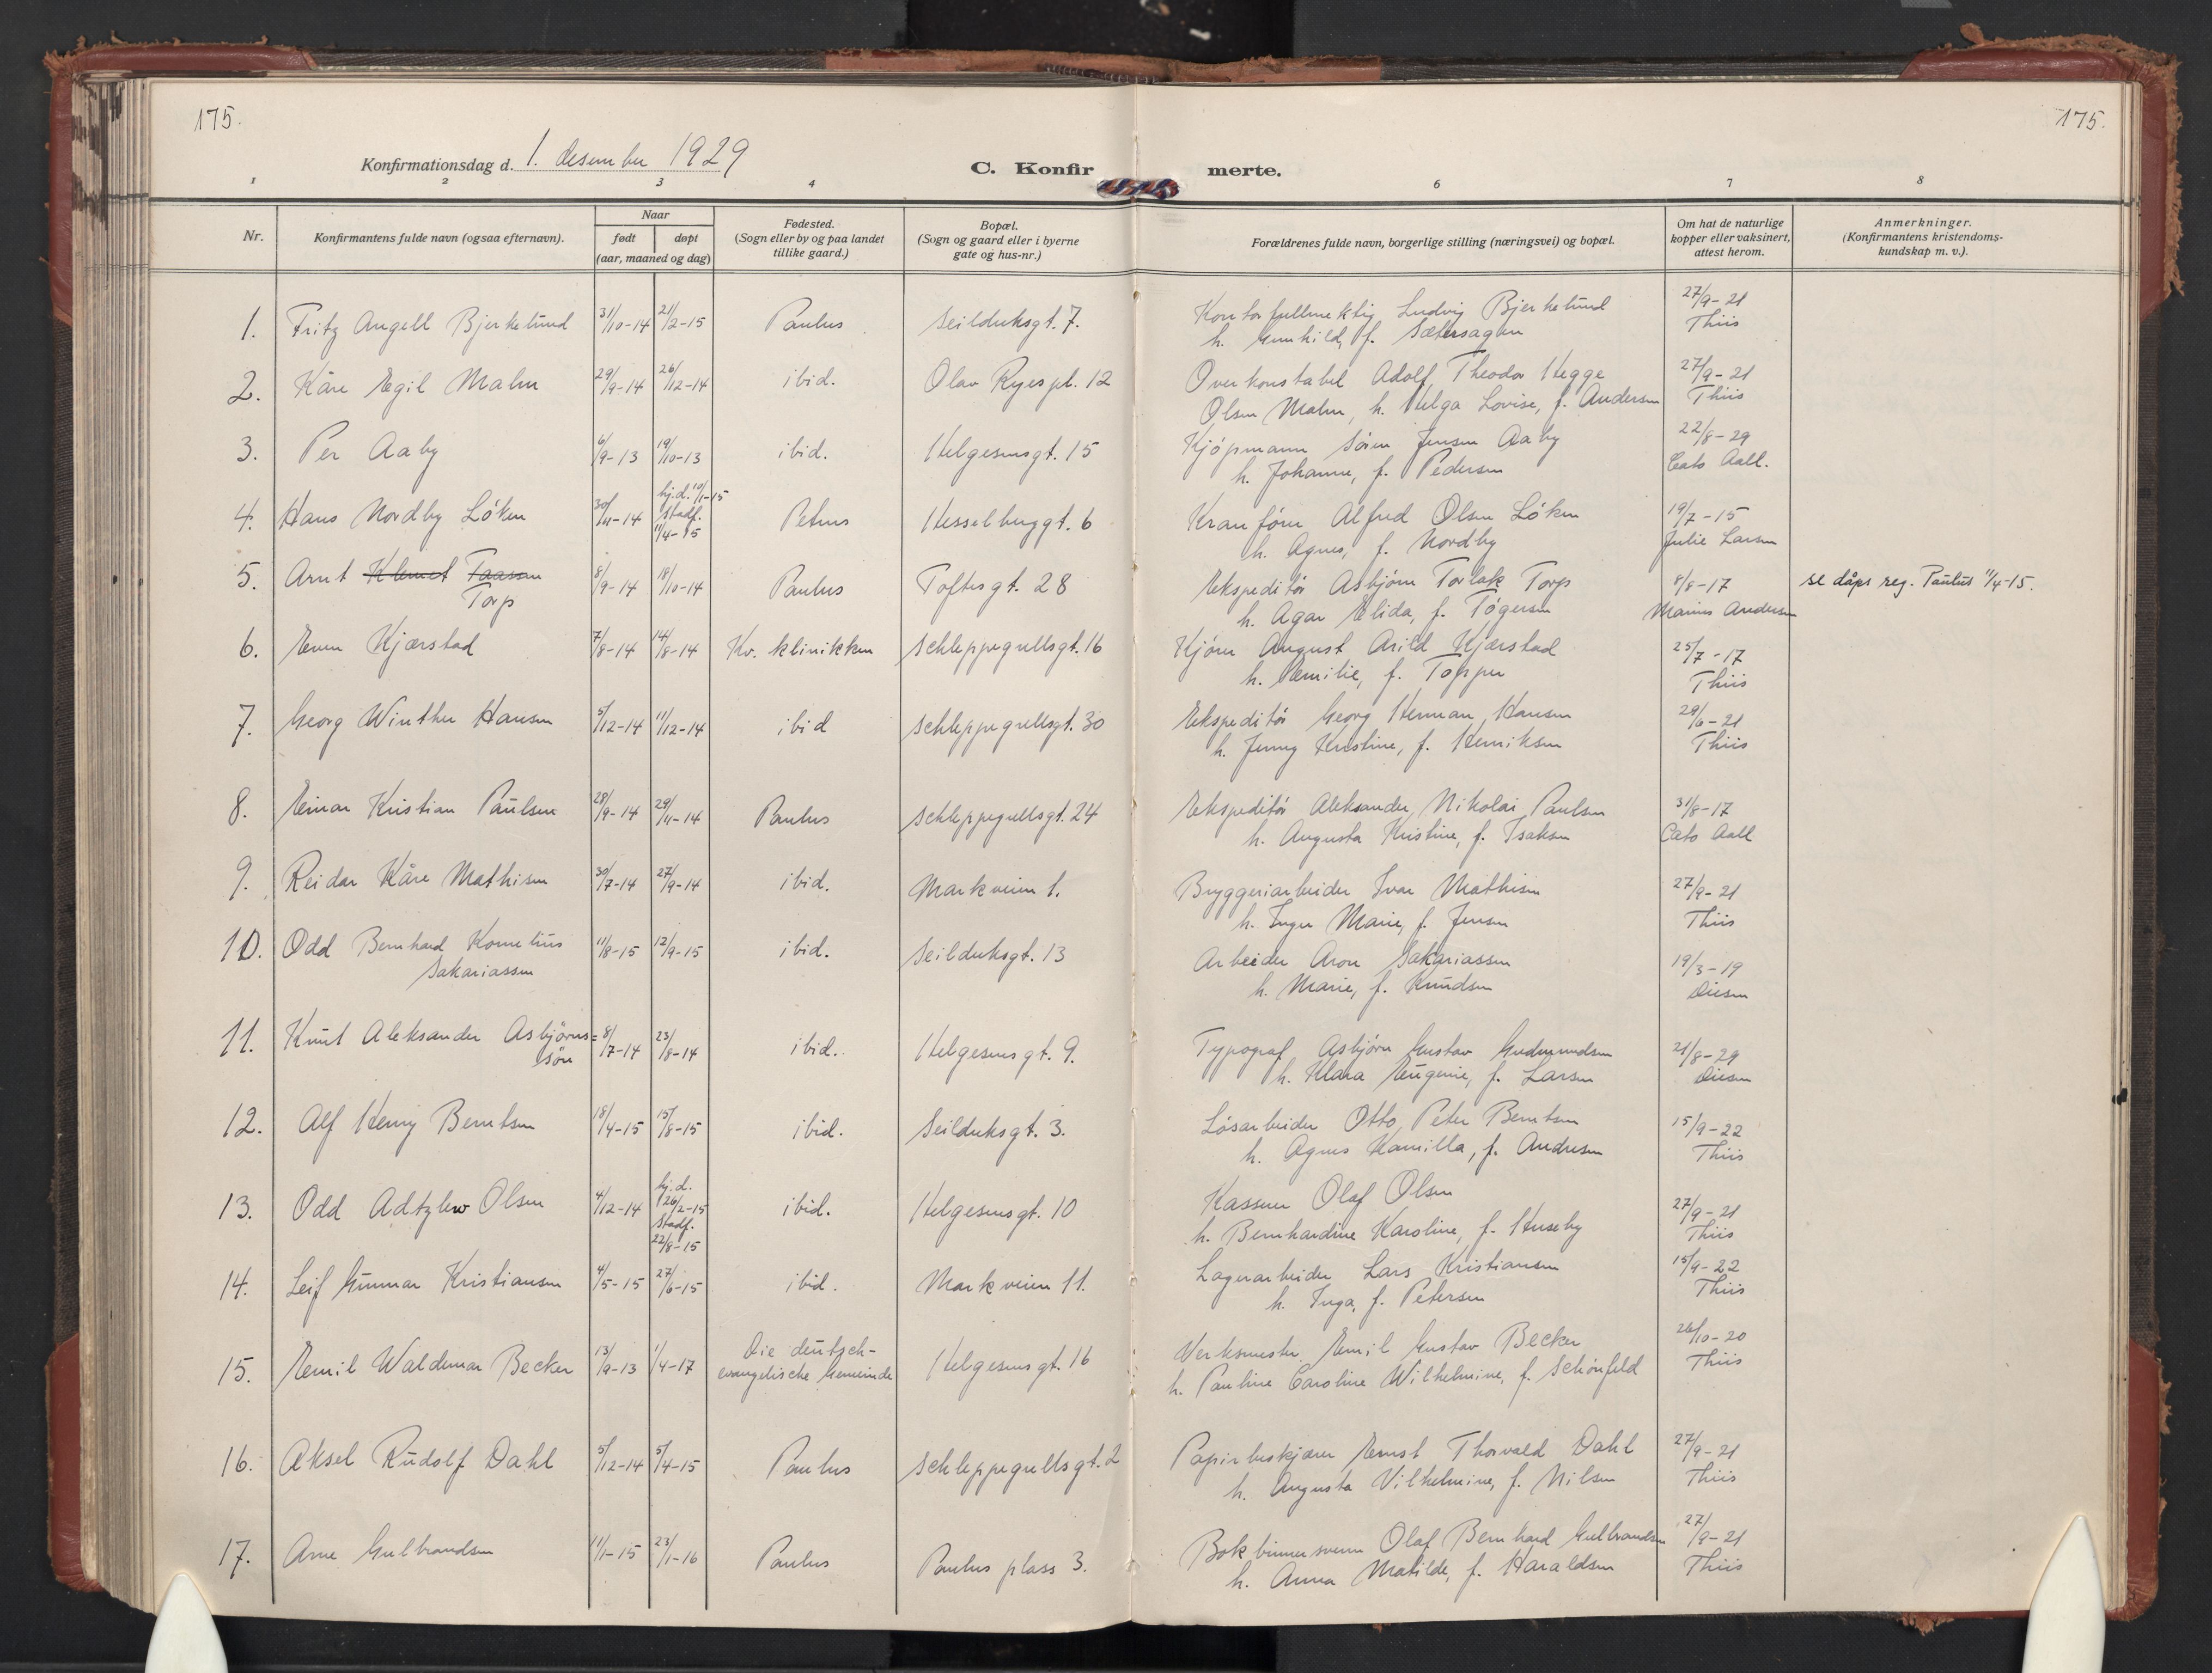 175.
175.
Konfirmationsdag d. 1. desember 1929
C. Konfir merte.
1 2 3 4 6 7 8
Nr.
Konfirmantens fulde navn (ogsaa efternavn).
Naar
født døpt
(aar, maaned og dag)
Fødested.
(Sogn eller by og paa landet
tillike gaard.)
Bopæl.
(Sogn og gaard eller i byerne
gate og hus-nr.)
Forældrenes fulde navn, borgerlige stilling (næringsvei) og bopæl.
Om hat de naturlige
kopper eller vaksinert,
attest herom.
Anmerkninger.
(Konfirmantens kristendoms-
kundskap m. v.).
1. Fritz Angell Bjerkelund 31/10-14 21/2-15 Paulus Seilduksgt. 7. Kontorfullmektig Ludvig Bjerkelund 27/9-21
h. Gunhild, f. Sætersagen Thiis
2. Kåre Egil Malm 29/9-14 26/12-14 ibid. Olav Ryes pl. 12 Overkonstabel Adolf Theodor Hegge 27/9-21
Olsen Malm, h. Helga Lovise, f. Andersen Thiis
3. Per Aaby 6/9-13 19/10-13 ibid. Helgesensgt. 15 Kjöpmann Sören Jensen Aaby 22/8-29
h. Johanne, f. Pedersen Cato Aall.
4. Hans Nordby Löken 30/11-14 hj.d. 10/1-15 stadf. 11/4-15 Petrus Hesselberggt. 6 Kranförer Alfred Olsen Löken 19/7-15
h. Agnes, f. Nordby Julie Larsen
5. Arnt Klemet Taassen 8/9-14 18/10-14 Paulus Toftesgt. 28 Ekspeditör Asbjörn Torlak Torp 8/8-17 se dåps reg. Paulus 11/4-15.
Torp h. Agar Elida, f. Tögersen Marius Andersen
6. Even Kjærstad 7/8-14 14/8-14 Kv. klinikken Schleppegrellsgt. 16 Kjörer August Arild Kjærstad 25/7-17
h. Emilie, f. Topper Thiis
7. Georg Winther Hansen 5/12-14 11/12-14 ibid Schleppegrellsgt. 30 Ekspeditör Georg Herman Hansen 29/6-21
h. Jenny Kristine, f. Henriksen Thiis
8. Einar Kristian Paulsen 28/9-14 29/11-14 Paulus Schleppegrellsgt. 24 Ekspeditör Aleksander Nikolai Paulsen 31/8-17
h. Augusta Kristine, f. Isaksen Cato Aall
9. Reidar Kåre Mathisen 30/7-14 27/9-14 ibid. Markveien 1. Bryggeriarbeider Ivar Mathisen 27/9-21
h. Inger Marie, f. Jensen Thiis
10. Odd Bernhard Kornelius 11/8-15 12/9-15 ibid. Seilduksgt. 13 Arbeider Aron Sakariassen 19/3-19
Sakariassen h. Marie, f. Knudsen Diesen
11. Knut Aleksander Asbjörns= 8/7-14 23/8-14 ibid. Helgesensgt. 9. Typograf Asbjörn Gustav Gudmundsen 21/8-29
sön h. Klara Eugenie, f. Larsen Diesen
12. Alf Henry Berntsen 18/4-15 15/8-15 ibid. Seilduksgt. 3. Lösarbeider Otto Peter Berntsen 15/9-22
h. Agnes Kamilla, f. Andresen Thiis
13. Odd Adtzlew Olsen 4/12-14 hj.d. 26/2-15 stadf. 22/8-15 ibid. Helgesensgt. 10 Kasserer Olaf Olsen 27/9-21
h. Bernhardine Karoline, f. Huseby Thiis
14. Leif Gunnar Kristiansen 4/5-15 27/6-15 ibid. Markveien 11. Lagerarbeider Lars Kristiansen 15/9-22
h. Inga, f. Petersen Thiis
15. Emil Waldemar Becker 13/9-13 1/4-17 Die deutsch-
evangelische Gemeinde Helgesensgt. 16 Verksmester Emil Gustav Becker 26/10-20
h. Pauline Caroline Wilhelmine, f. Schönfeld Thiis
16. Aksel Rudolf Dahl 5/12-14 5/4-15 Paulus Schleppegrellsgt. 2 Papirbeskjærer Ernst Thorvald Dahl 27/9-21
h. Augusta Vilhelmine, f. Nilsen Thiis
17. Arne Gulbrandsen 11/1-15 23/1-16 Paulus Paulus plass 3. Bokbindersvenn Olaf Bernhard Gulbrandsen 27/9-21
h. Anna Matilde, f. Haraldsen Thiis